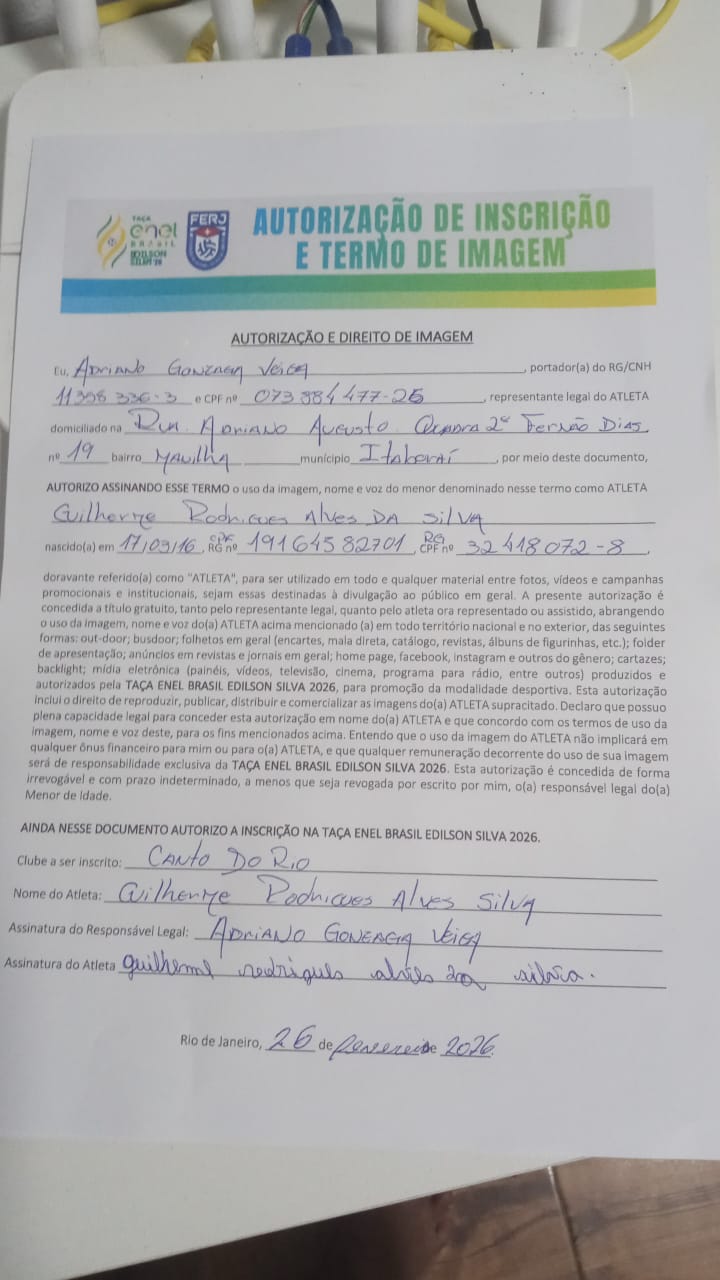 TAÇA
enel
BRASIL
EDILSON
SILVA'26
FERJ
AUTORIZAÇÃO DE INSCRIÇÃO
E TERMO DE IMAGEM
AUTORIZAÇÃO E DIREITO DE IMAGEM
Eu, Adriano Gonzaga Veiga, portador(a) do RG/CNH
11398 336-3 e CPF nº 073 884 477-25, representante legal do ATLETA
domiciliado na Rua. Adriano Augusto. Quadra 2ª Fernão Dias
nº 19 bairro Manilha município Itaboraí, por meio deste documento,
AUTORIZO ASSINANDO ESSE TERMO o uso da imagem, nome e voz do menor denominado nesse termo como ATLETA
Guilherme Rodrigues Alves DA Silva
nascido(a) em 17/03/16, CPF RG nº 19164582701, RG CPF nº 32418072-8,
doravante referido(a) como "ATLETA", para ser utilizado em todo e qualquer material entre fotos, vídeos e campanhas
promocionais e institucionais, sejam essas destinadas à divulgação ao público em geral. A presente autorização é
concedida a título gratuito, tanto pelo representante legal, quanto pelo atleta ora reportado ou assistido, abrangendo
o uso da imagem, nome e voz do(a) ATLETA acima mencionado (a) em todo território nacional e no exterior, das seguintes
formas: out-door; busdoor; folhetos em geral (encartes, mala direta, catálogo, revistas, álbuns de figurinhas, etc.); folder
de apresentação; anúncios em revistas e jornais em geral; home page, facebook, instagram e outros do gênero; cartazes;
backlight; mídia eletrônica (painéis, vídeos, televisão, cinema, programa para rádio, entre outros) produzidos e
autorizados pela TAÇA ENEL BRASIL EDILSON SILVA 2026, para promoção da modalidade desportiva. Esta autorização
inclui o direito de reproduzir, publicar, distribuir e comercializar as imagens do(a) ATLETA supracitado. Declaro que possuo
plena capacidade legal para conceder esta autorização em nome do(a) ATLETA e que concordo com os termos de uso da
imagem, nome e voz deste, para os fins mencionados acima. Entendo que o uso da imagem do ATLETA não implicará em
qualquer ônus financeiro para mim ou para o(a) ATLETA, e que qualquer remuneração decorrente do uso de sua imagem
será de responsabilidade exclusiva da TAÇA ENEL BRASIL EDILSON SILVA 2026. Esta autorização é concedida de forma
irrevogável e com prazo indeterminado, a menos que seja revogada por escrito por mim, o(a) responsável legal do(a)
Menor de Idade.
AINDA NESSE DOCUMENTO AUTORIZO A INSCRIÇÃO NA TAÇA ENEL BRASIL EDILSON SILVA 2026.
Clube a ser inscrito: CANTO DO RIO
Nome do Atleta: Guilherme Rodrigues Alves Silva
Assinatura do Responsável Legal: Adriano Gonzaga Veiga
Assinatura do Atleta guilherme rodrigues alves da silva.
Rio de Janeiro, 26 de fevereiro de 2026.